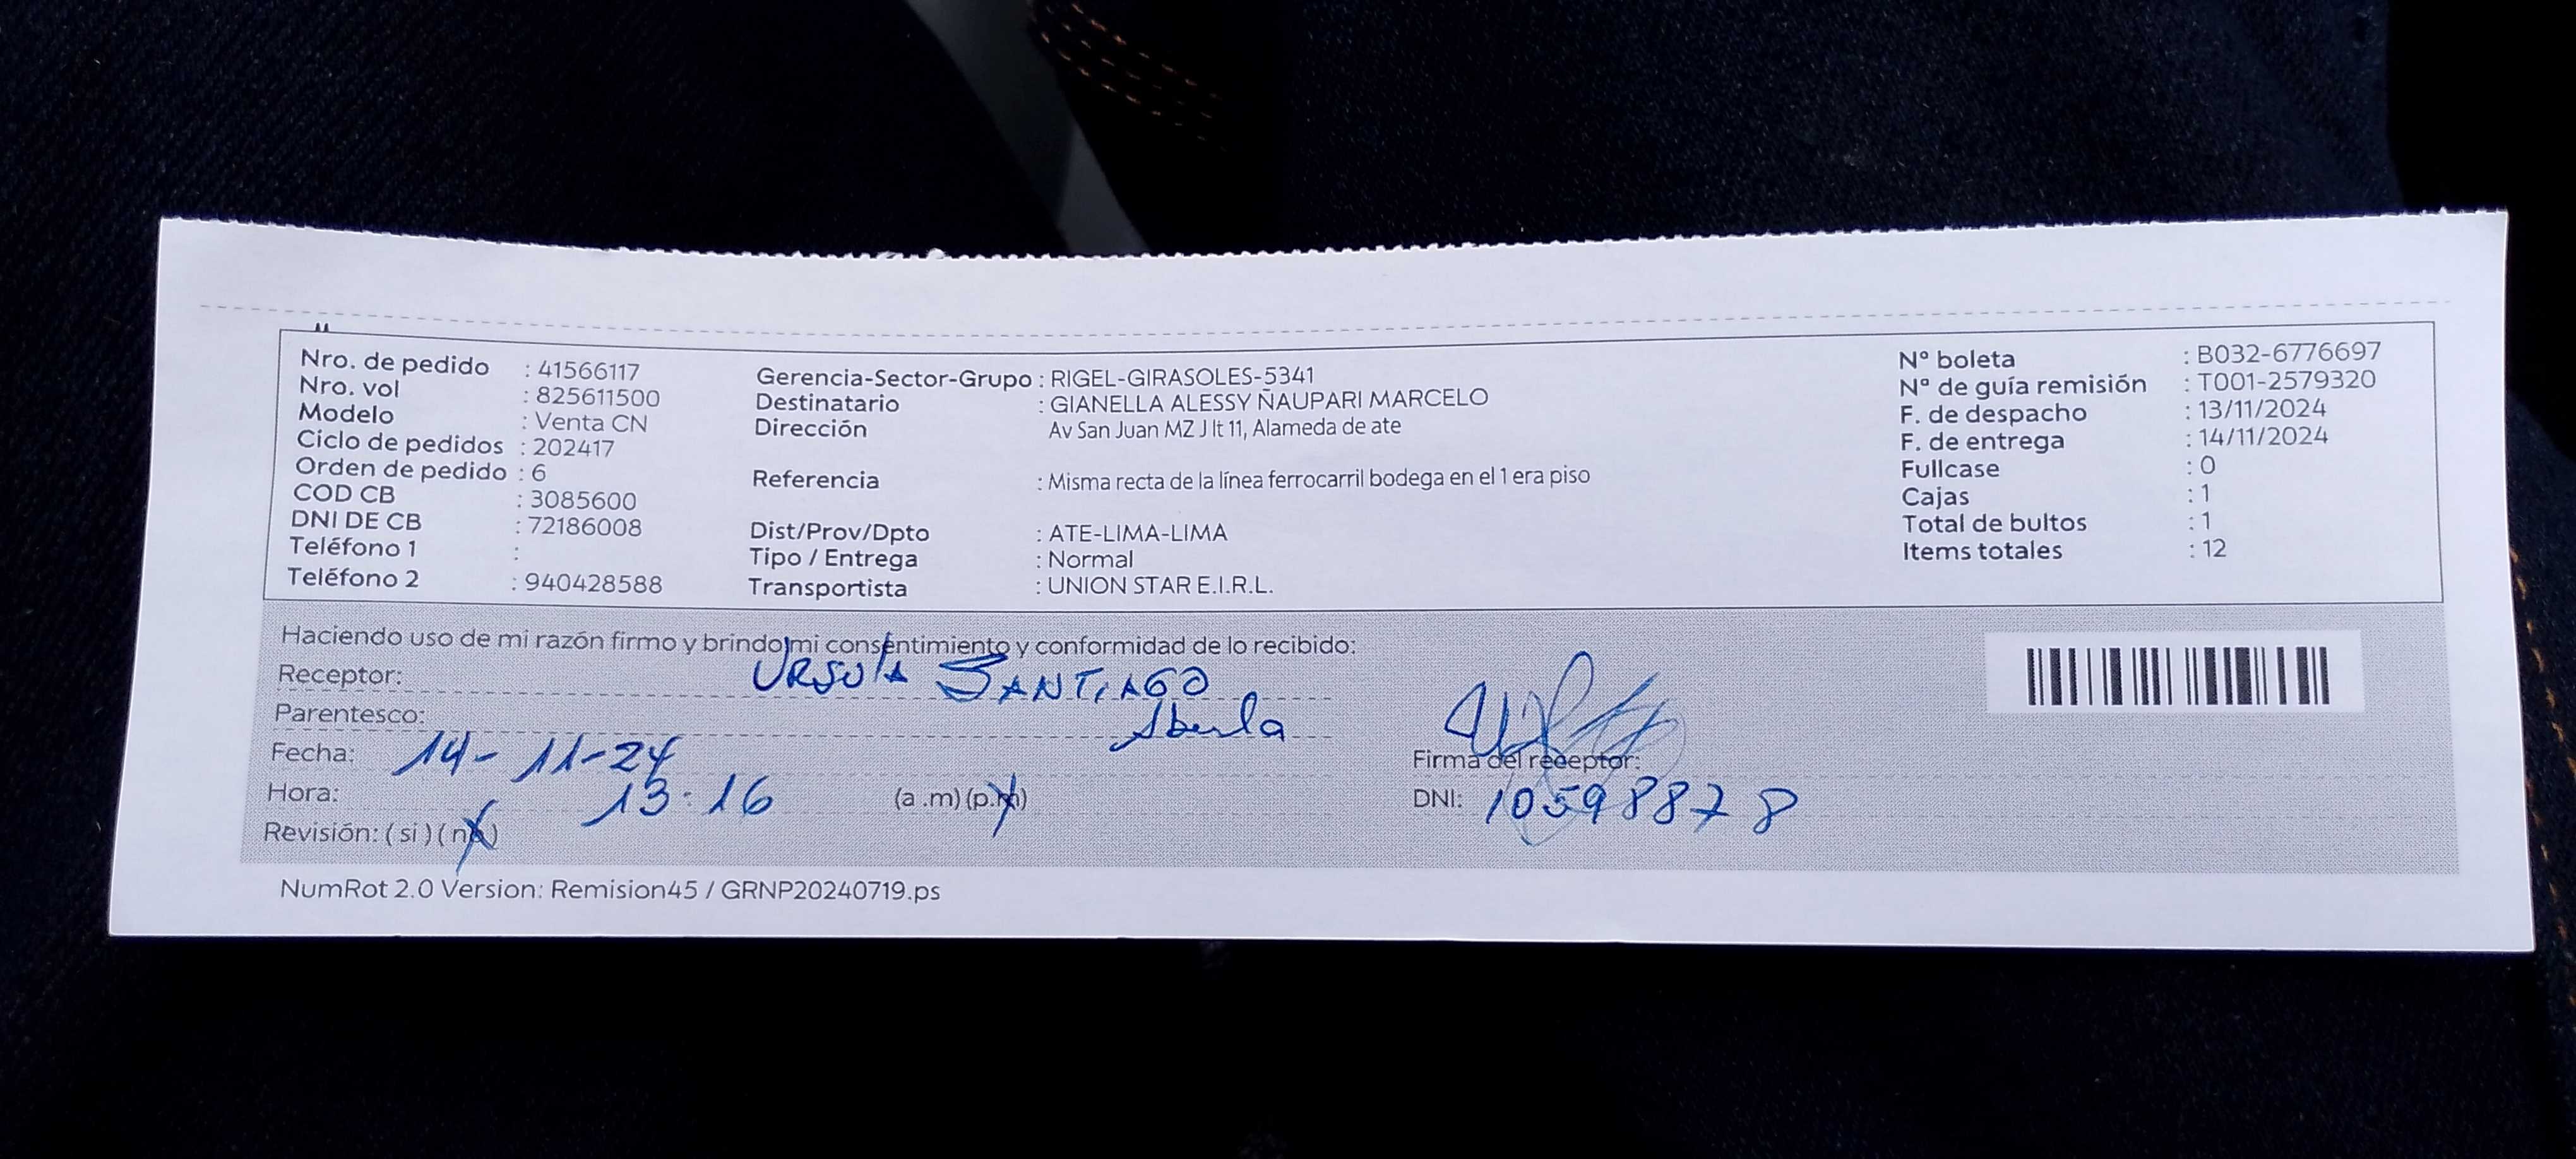 Nro. de pedido : 41566117
Nro. vol : 825611500
Modelo : Venta CN
Ciclo de pedidos : 202417
Orden de pedido : 6
COD CB : 3085600
DNI DE CB : 72186008
Teléfono 1 :
Teléfono 2 : 940428588
Gerencia-Sector-Grupo : RIGEL-GIRASOLES-5341
Destinatario : GIANELLA ALESSY ÑAUPARI MARCELO
Dirección Av San Juan MZ J lt 11, Alameda de ate
Referencia : Misma recta de la línea ferrocarril bodega en el 1 era piso
Dist/Prov/Dpto : ATE-LIMA-LIMA
Tipo / Entrega : Normal
Transportista : UNION STAR E.I.R.L.
Nº boleta : B032-6776697
Nª de guía remisión : T001-2579320
F. de despacho : 13/11/2024
F. de entrega : 14/11/2024
Fullcase : 0
Cajas : 1
Total de bultos : 1
Items totales : 12
Haciendo uso de mi razón firmo y brindo mi consentimiento y conformidad de lo recibido:
Receptor: URSULA SANTIAGO
Parentesco:
Fecha: 14-11-24
Hora: 13:16 (a .m) (p.m)
Revisión: ( si ) ( no )
Firma del receptor:
DNI: 10598878
NumRot 2.0 Version: Remision45 / GRNP20240719.ps